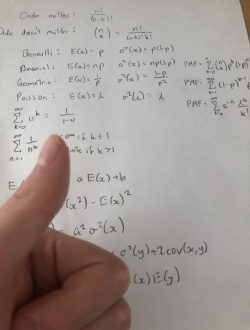 Order matters: n!/(n-k)!
Order doesn't matter: (n k) = n!/(n-k)!k!
Bernoulli: E(x) = p σ²(x) = p(1-p)
Binomial: E(x) = np σ²(x) = np(1-p) PMF =
Geometric: E(x) = 1/p σ²(x) = 1-p/p² PMF =
Poisson: E(x) = λ σ²(x) = λ PMF =
∞ Σ k=0 u^k = 1/1-u
∞ Σ n=1 1/n^k if k ≤ 1
if k > 1
a E(x) + b
(x²) - E(x)²
= a² σ²(x)
σ²(y) + 2cov(x,y)
(x) E(y)